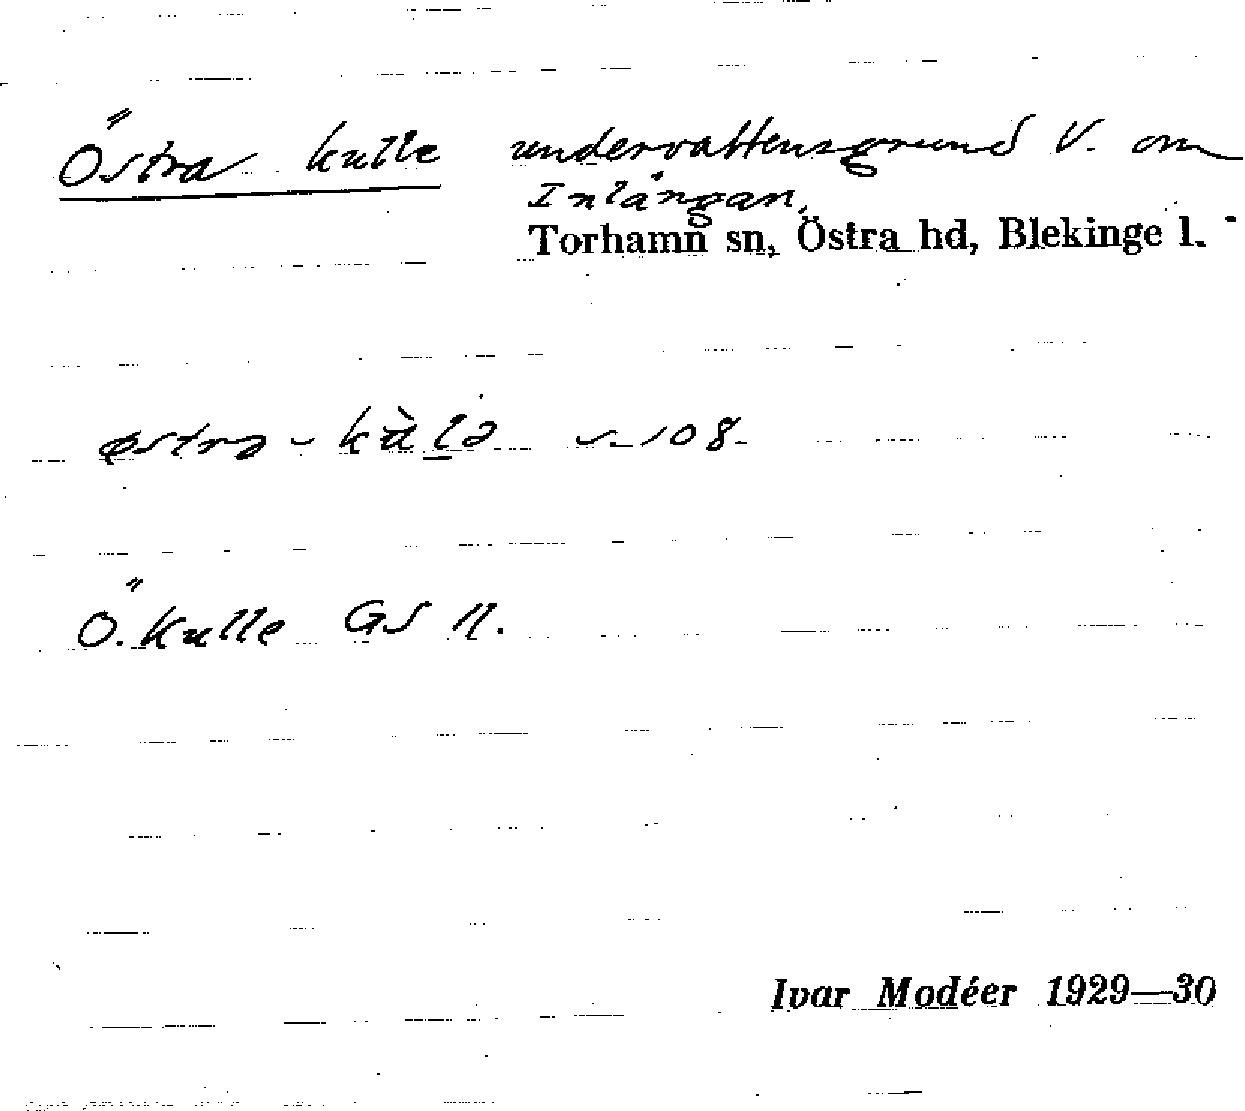 Östra kulle undervattensgrund V. om
Inlångan.
Torhamn sn, Östra hd, Blekinge l.
østra - kùlə s. 108.
Ö. kulle GS 11.
Ivar Modéer 1929—30